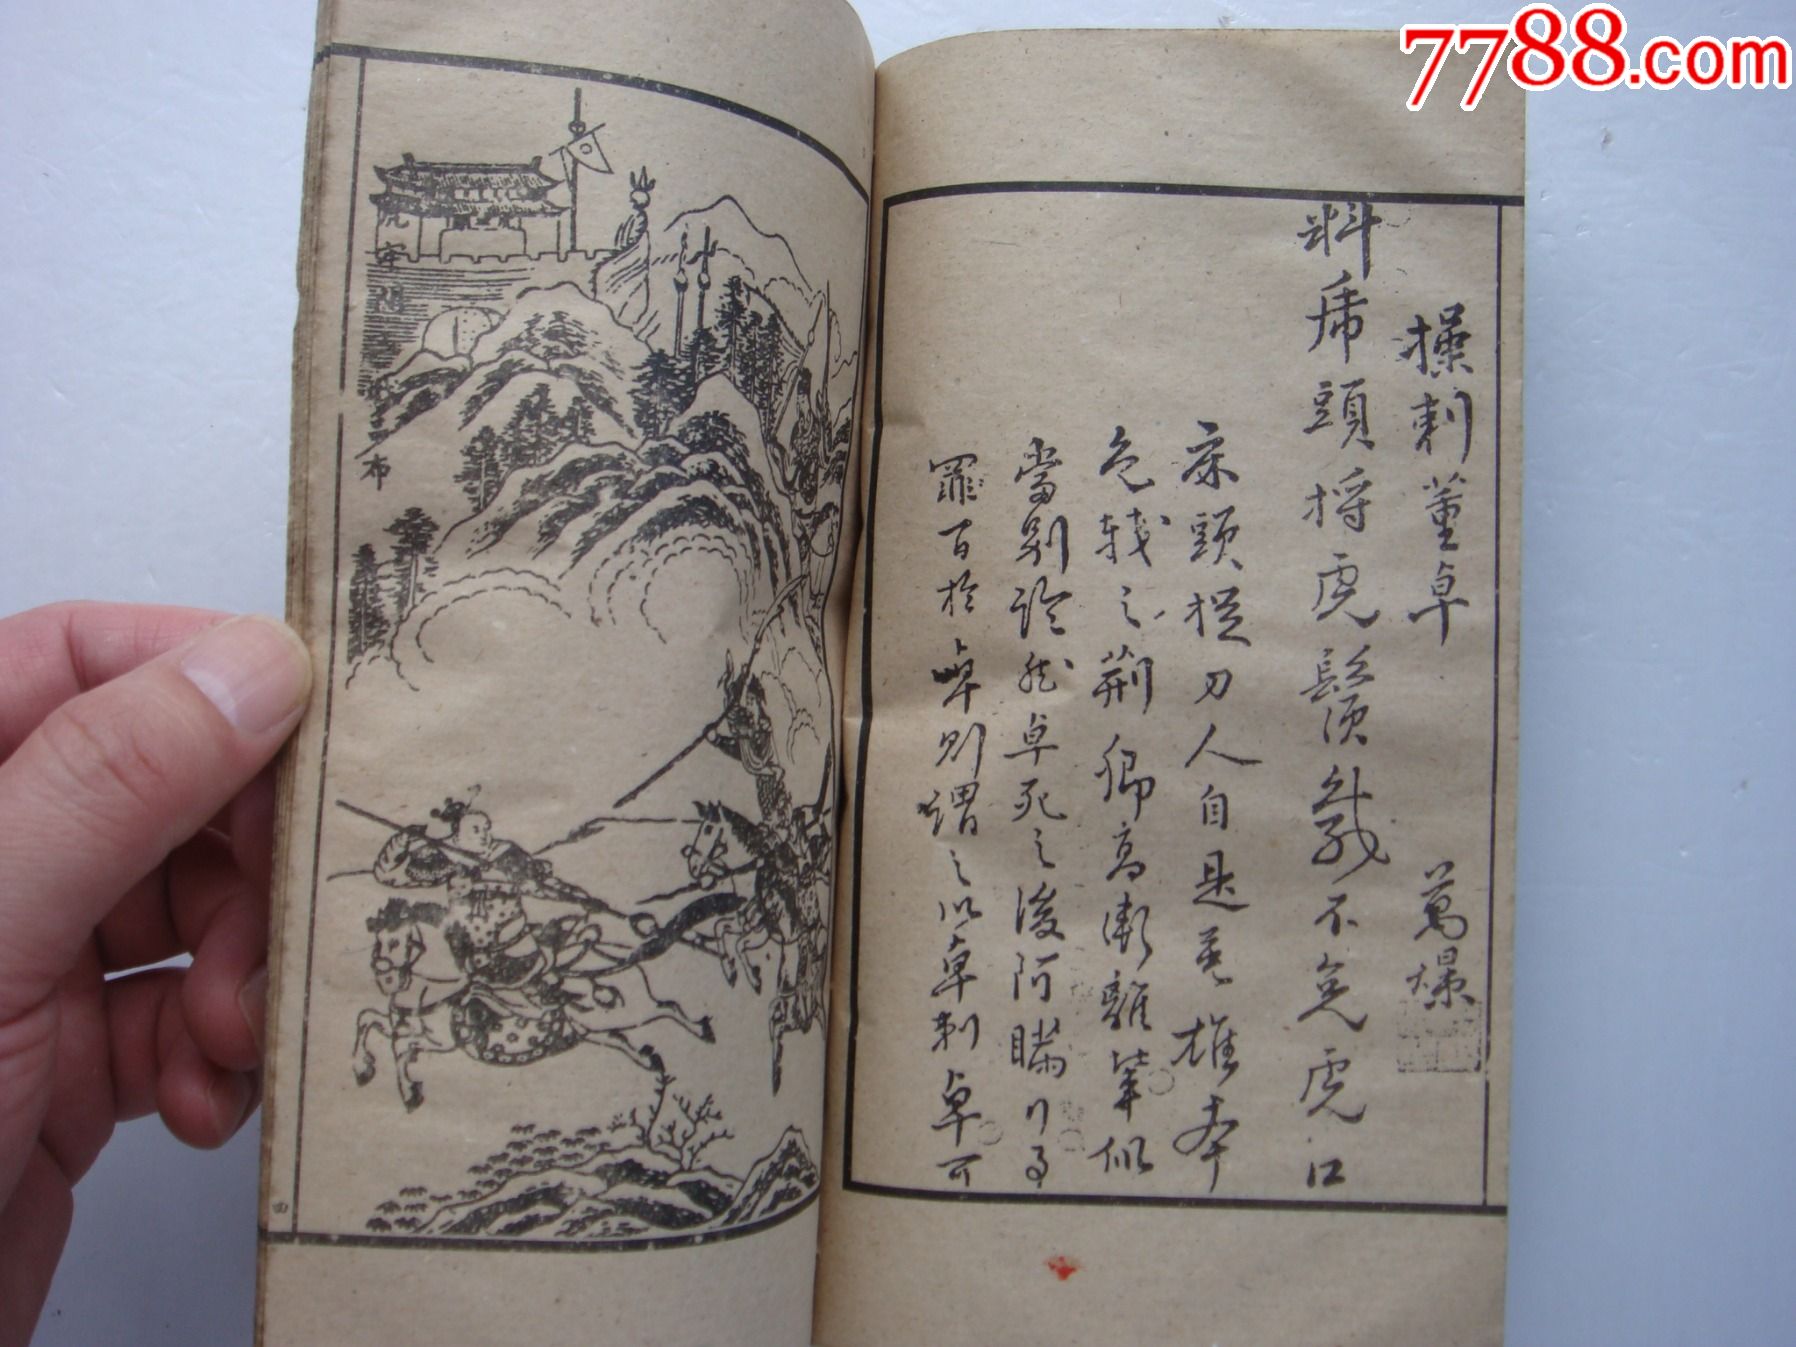 7788.com
操刺董卓
料乕頭捋虎鬚幾不免虎口
床頭提刀人自是英雄本
色較之荊卿高漸離輩似
當別論然卓死之後阿瞞行事
罪百於卓則謂之以卓刺卓可
虎牢關
布
四